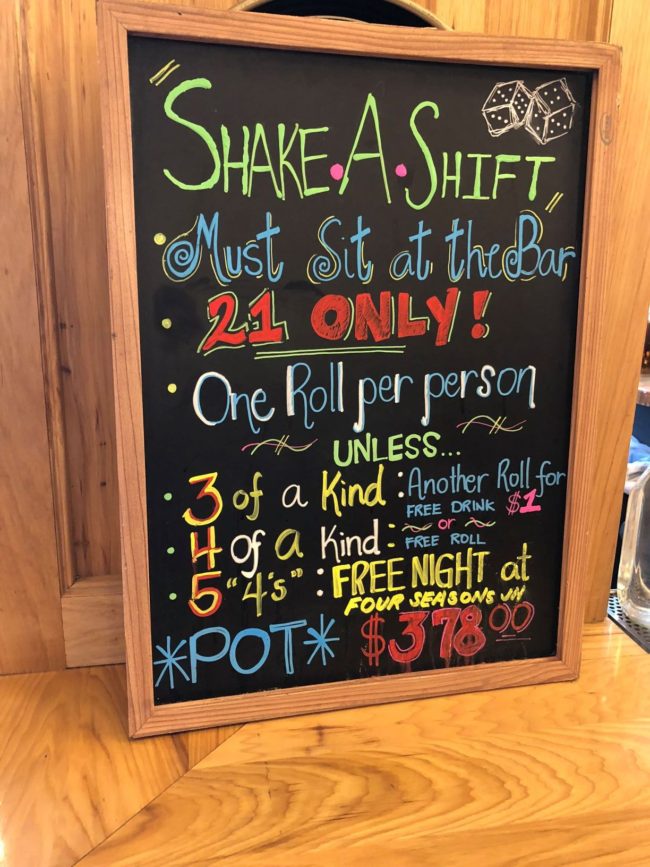 "SHAKE•A•SHIFT"
• Must Sit at the Bar
• 21 ONLY!
• One Roll per person
UNLESS...
• 3 of a Kind: Another Roll for $1
• 4 of a Kind: FREE DRINK or FREE ROLL
• 5 "4's": FREE NIGHT at FOUR SEASONS VN
*POT* $378.00